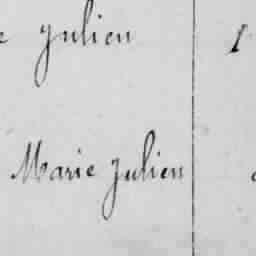 Julien 1
Marie Julien